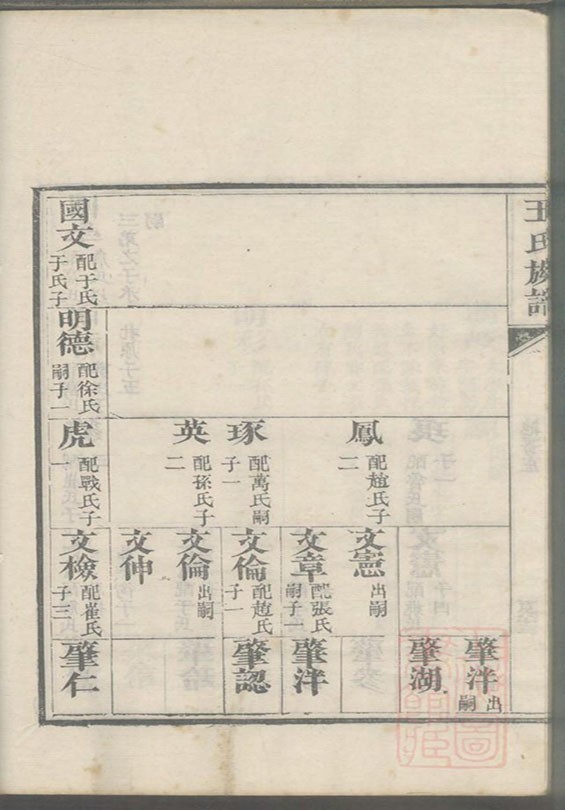 王氏族譜
鳳 配趙氏子二
琢 配萬氏嗣子一
英 配孫氏子二
國文 配于氏 于氏子
明德 配徐氏 嗣子二
虎 配戰氏子一
文憲 出嗣
文章 配張氏 嗣子一
文倫 配趙氏 子一
文倫 出嗣
文伸
文檢 配崔氏 子三
肇泮 出嗣
肇湖
肇泮
肇認
肇仁